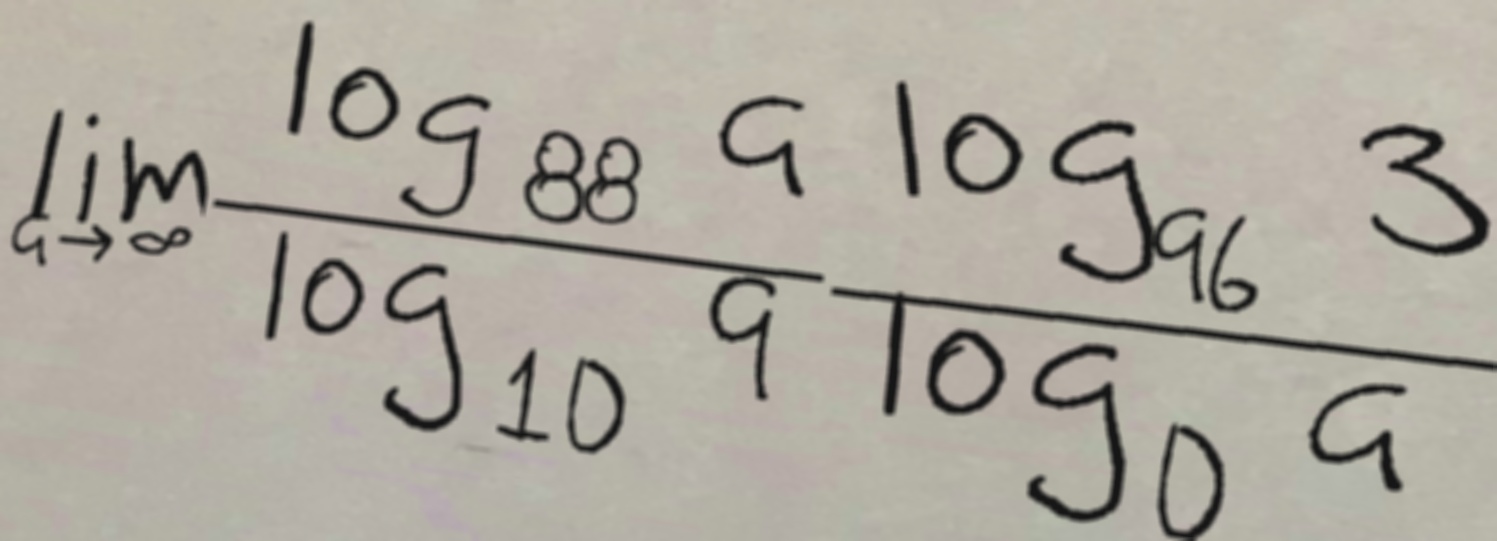 \lim_{a \to \infty} \frac{\log_{88} a}{\log_{10} 9} \frac{\log_{96} 3}{\log_{0} a}